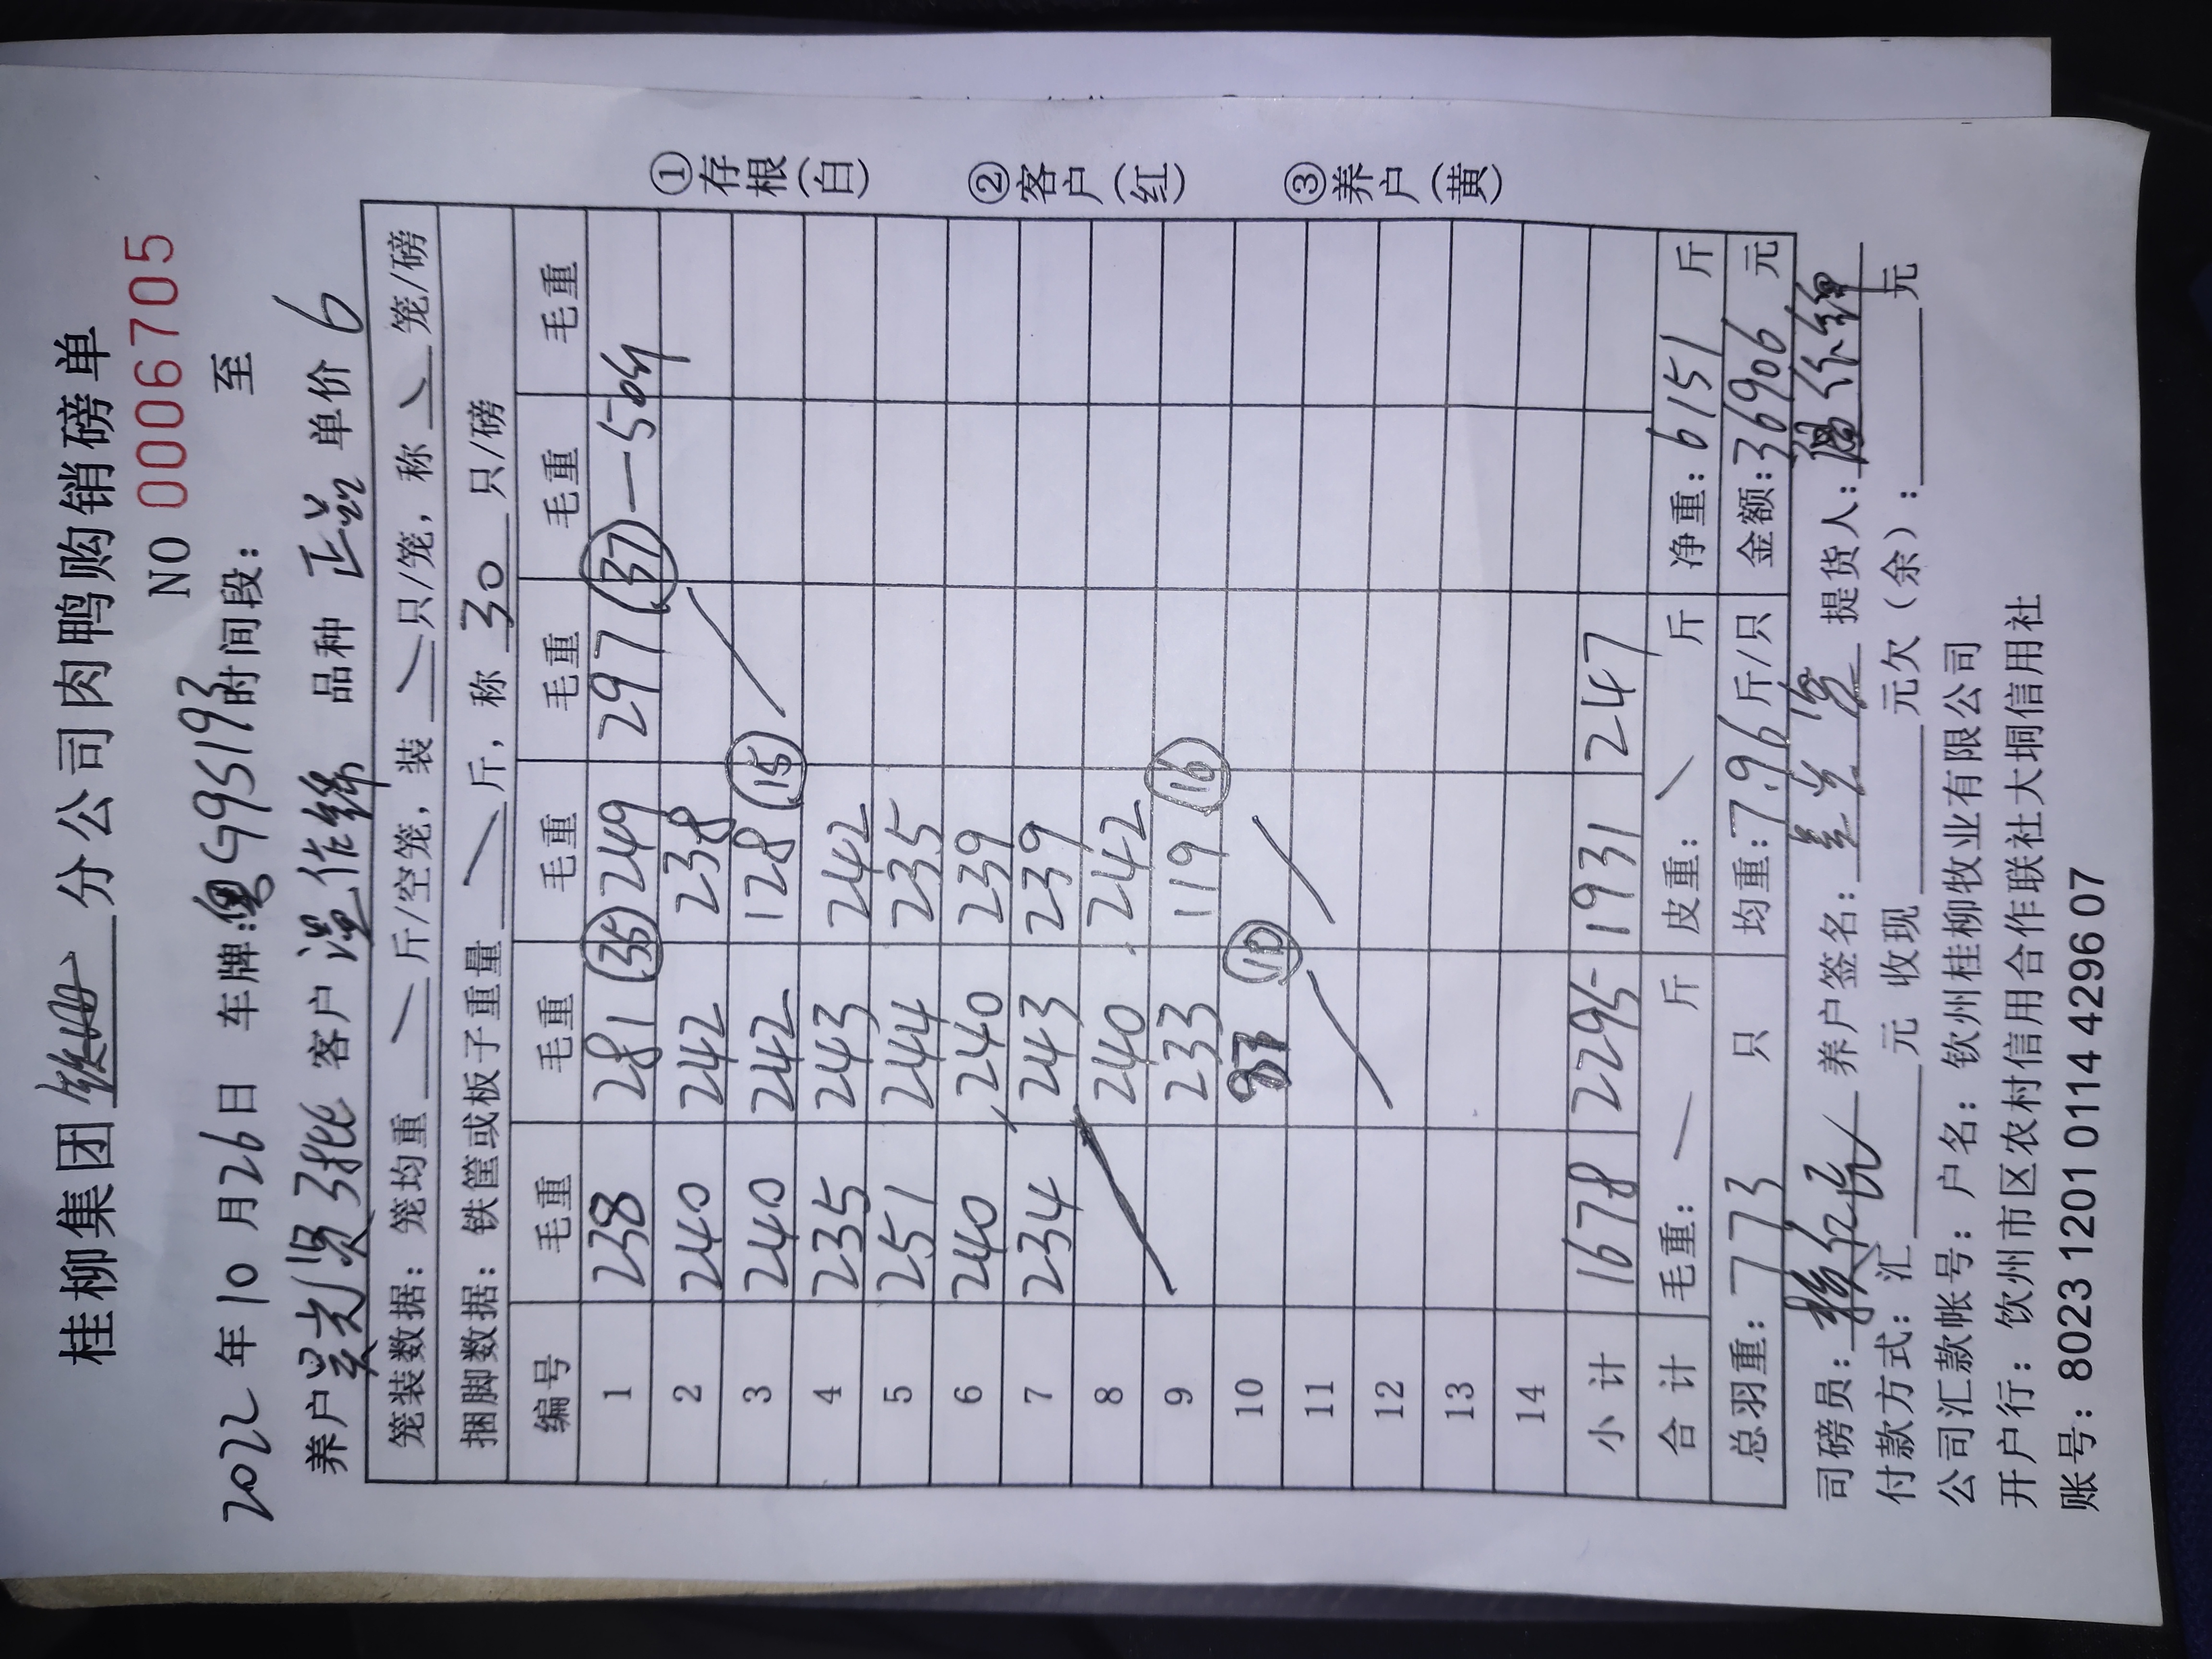 桂柳集团 分公司肉鸭购销磅单
NO 0006705
2022 年 10 月 26 日 车牌: G95193 时间段: 至
养户 张 客户 温作 品种 正品 单价 6
笼装数据: 笼均重 斤/空笼, 装 只/笼, 称 笼/磅
捆脚数据: 铁筐或板子重量 斤, 称 30 只/磅
编号 毛重 毛重 毛重 毛重 毛重 毛重
1 238 281 (35) 249 297 (37) — 504
2 240 242 238
3 240 242 128 (15)
4 235 243 242
5 251 244 235
6 240 240 239
7 234 243 239
8 240 242
9 233 119 (16)
10 87 (10)
11
12
13
14
小计 1678 2295 1931 247
合计 毛重: 斤 皮重: 斤 净重: 6151 斤
总羽重: 773 只 均重: 7.96 斤/只 金额: 36906 元
司磅员: 养户签名: 提货人:
付款方式: 汇 元 收现 元欠 (余) : 元
公司汇款帐号: 户名: 钦州桂柳牧业有限公司
开户行: 钦州市区农村信用合作联社大垌信用社
账号: 8023 1201 0114 4296 07
①存根(白)
②客户(红)
③养户(黄)